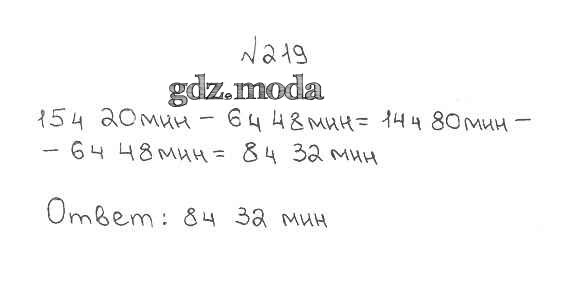 №219
gdz.moda
15ч 20мин - 6ч 48мин = 14ч 80мин -
- 6ч 48мин = 8ч 32 мин
Ответ: 8ч 32 мин